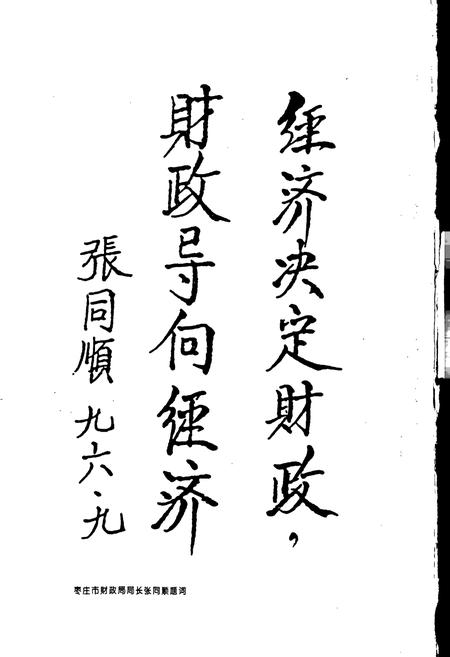 經济决定财政，
財政导向經济
張同順 九六·九
枣庄市财政局局长张同顺题词